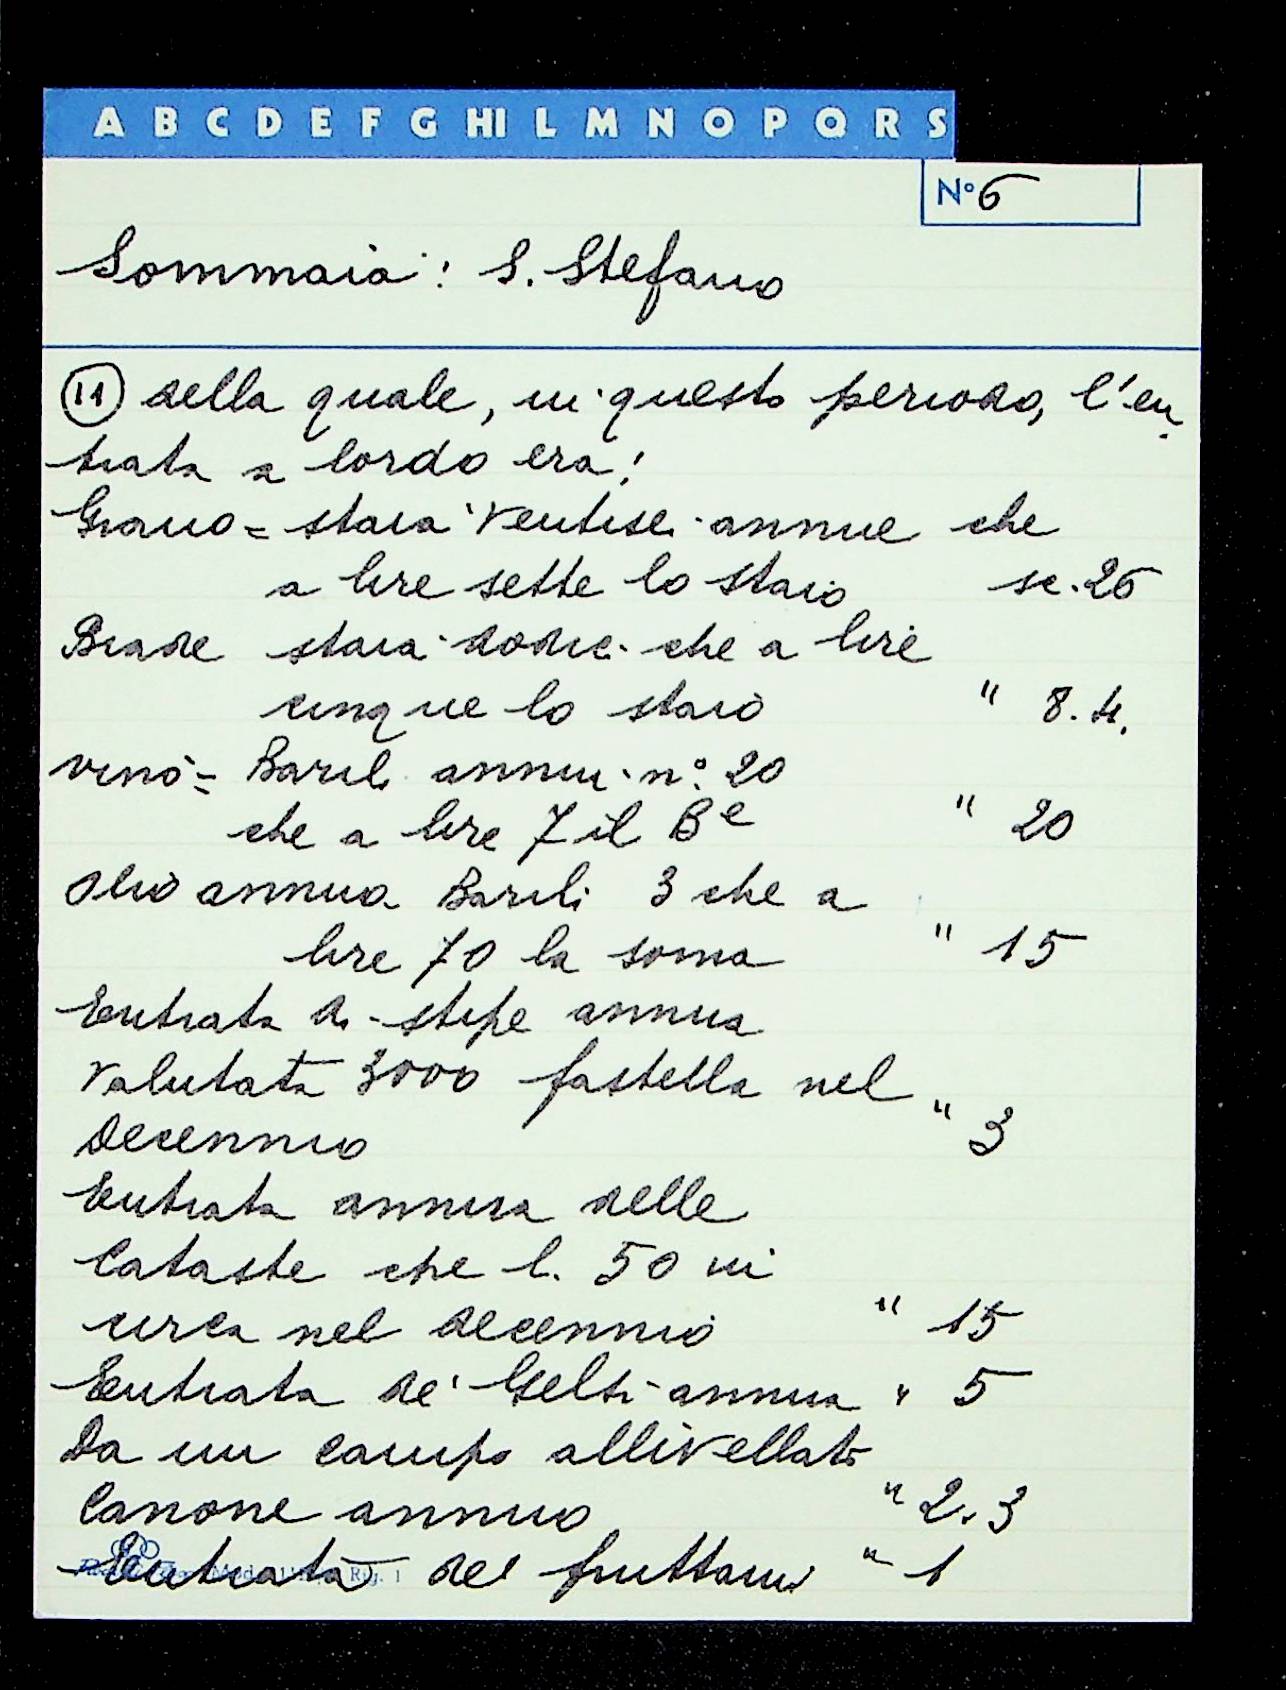 A B C D E F G HI L M N O P Q R S
N° 6
Sommaia: S. Stefano
(11) della quale, in questo periodo, l'en-
trata a lordo era:
Grano = staia ventisei annue che
a lire sette lo staio sc. 26
Biade staia dodici che a lire
cinque lo staio " 8.4.
vino = Barili annui n° 20
che a lire 7 il Be " 20
Olio annua Barili 3 che a
lire 70 la soma " 15
Entrata di stipe annua
valutata 3000 fastella nel
decennio " 3
Entrata annua delle
Cataste che l. 50 in
circa nel decennio " 15
Entrata de' Gelsi annua " 5
Da un campo allivellato
Canone annuo " 2.3
Entrata del fruttami " 1
Rig. 1